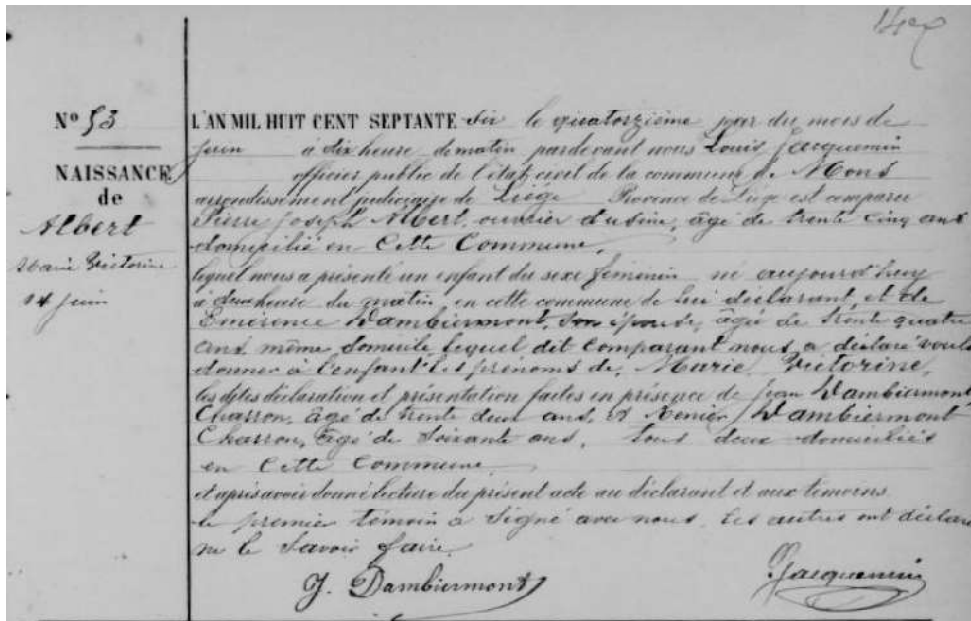 Nº 53
NAISSANCE
de
Albert
Marie Victorine
14 juin
L'AN MIL HUIT CENT SEPTANTE Six le quatorzième jour du mois de
juin à dix heure du matin pardevant nous Louis Jacquemin
officier public de l'état civil de la commune de Mons
arrondissement judiciaire de Liége Province de Liége est comparu
Pierre Joseph Albert, ouvrier d'usine, âgé de trente cinq ans
domicilié en Cette Commune,
lequel nous a présenté un enfant du sexe féminin né aujourd'huy
a heure du matin, en cette commune de lui déclarant, et de
Emérence Dambiermont, Son épouse, âgé de trente quatre
ans, même domicile lequel dit Comparant nous a déclaré vouloir
donner à l'enfant les prénoms de, Marie Victorine,
les dites déclaration et présentation faites en présence de Jean Dambiermont
Charron, âgé de trente deux ans, et Dambiermont
Charron, âgé de Soixante ans, Tous deux domiciliés
en Cette Commune
et après avoir donné lecture du présent acte au déclarant et aux témoins
le premier témoin a Signé avec nous, Les autres ont déclaré
ne le Savoir faire.
J. Dambiermont
Jacquemin